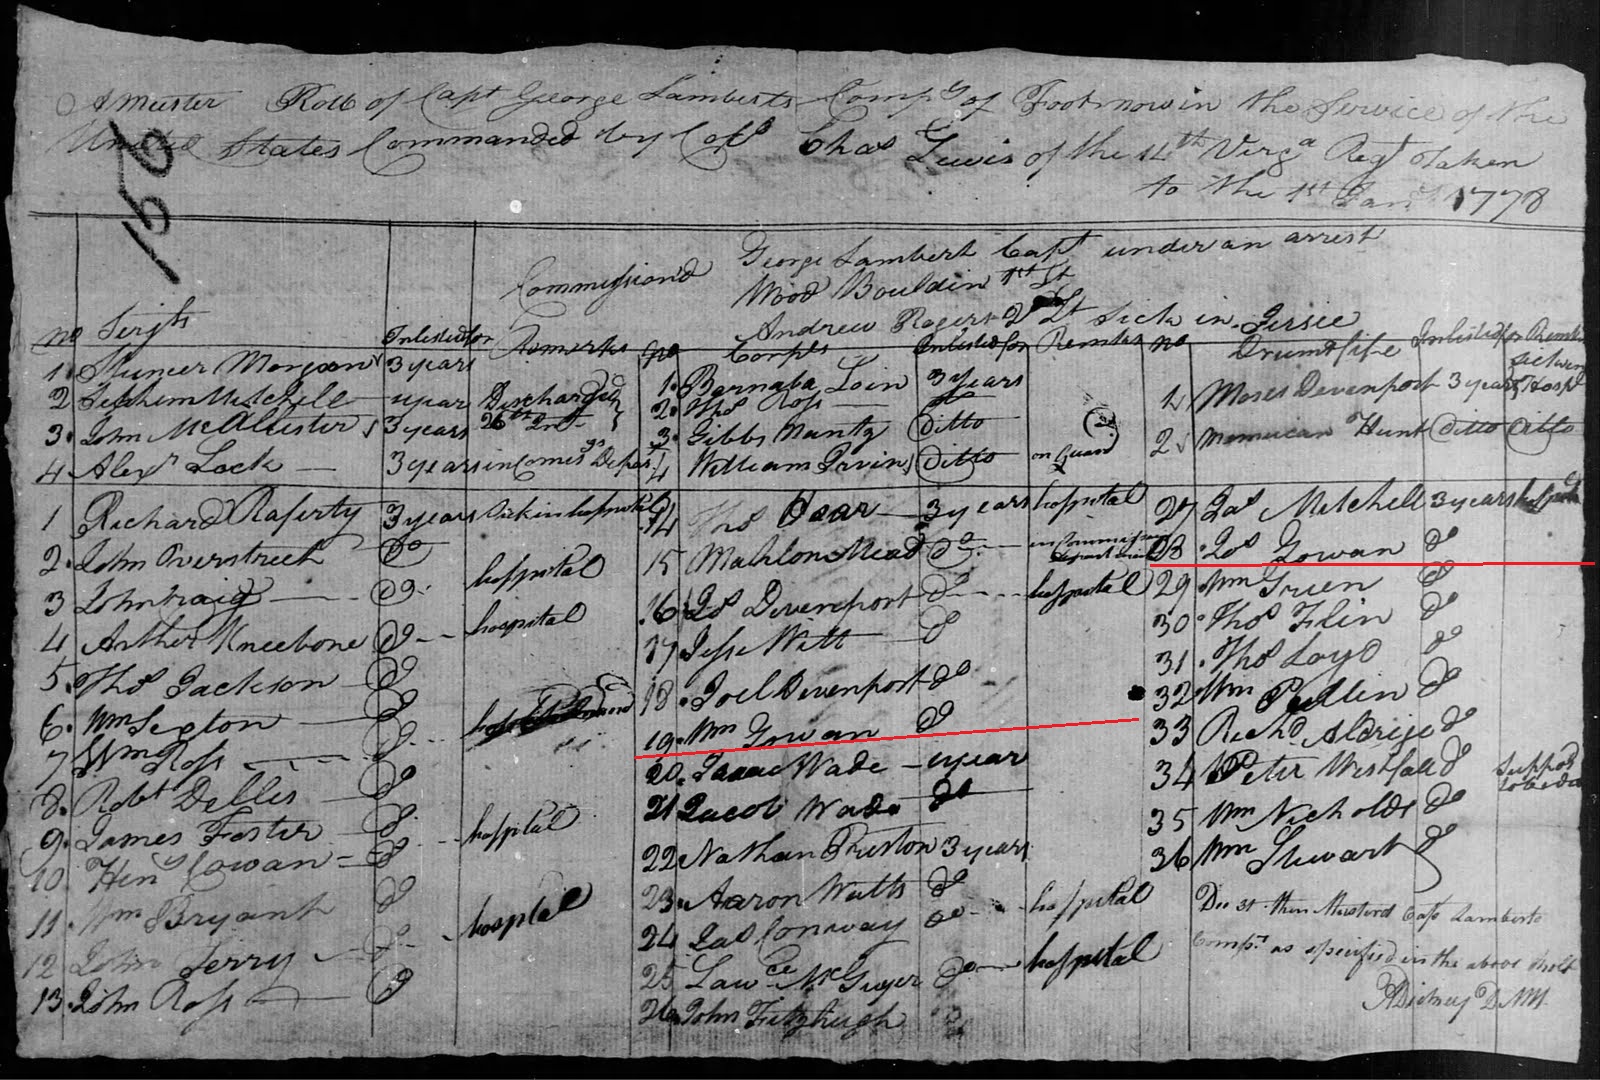 A Muster Roll of Capt George Lamberts Compy of Foot now in the Service of the
United States Commanded by Colo Chas Lewis of the 14th Virga Regt Taken
to the 1st Jany 1778
156
Commissiond
George Lambert Capt under an arrest
Wood Bouldin 1st Lt
Andrew Rogers 2d Lt Sick in Jersie
no Serjts Inlisted for Remarks
1 Spencer Morgan 3 years
2 Mitchell 1 year Discharged
3 John McAllister 3 years 26th
4 Alexr Lock 3 years in Comesys Depart
no Corpls Inlisted for Remarks
1 Barnaba Loin 3 years
2 Thos Ross do
3 Gibbs Nantz Ditto
4 William Irvin Ditto on Guard
no Drum & fife Inlisted for
1 Moses Devenport 3 years Hospl
2 Hunt Ditto Ditto
1 Richard Raferty 3 years Sick in hosppital
2 John Overstreet Do
3 John Craig do hosppital
4 Arther Kneebone do hospital
5 Thos Jackson do
6 Wm Sexton do
7 Wm Ross do
8 Robt Delles do
9 James Foster do hospital
10 Heny Cowan do
11 Wm Bryant do
12 John Terry do hospital
13 John Ross do
14 Thos 3 years hosppital
15 Mahlon Mead do
16 Js Devenport do hosppital
17 Jesse Witt do
18 Joel Devenport do
19 Wm Gowan do
20 Isaac Wade 1 year
21 Jacob Wade do
22 Nathan Preston 3 years
23 Aaron Watts do
24 Jas Conway do hospital
25 Lawce McGuyer do hospital
26 John Fitzhugh
27 Jas Mitchell 3 years
28 Jos Gowan do
29 Wm Green do
30 Thos Flin do
31 Thos Loyd do
32 Wm Pullin do
33 Richd Aldrige do
34 Peter Westfall do
35 Wm Nicholds do
36 Wm Stewart do
Dec 31 then Musterd Capt Lamberts
Compy as specified in the above Roll